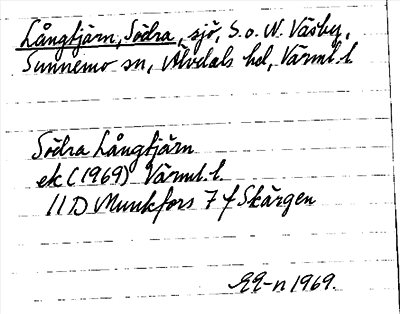 Långtjärn, Södra, sjö, S. o. N. Väsby,
Sunnemo sn, Älvdals hd, Värml. l.
Södra Långtjärn
ek (1969) Värml. l.
11D Munkfors 7 f Skärgen
RR-n 1969.